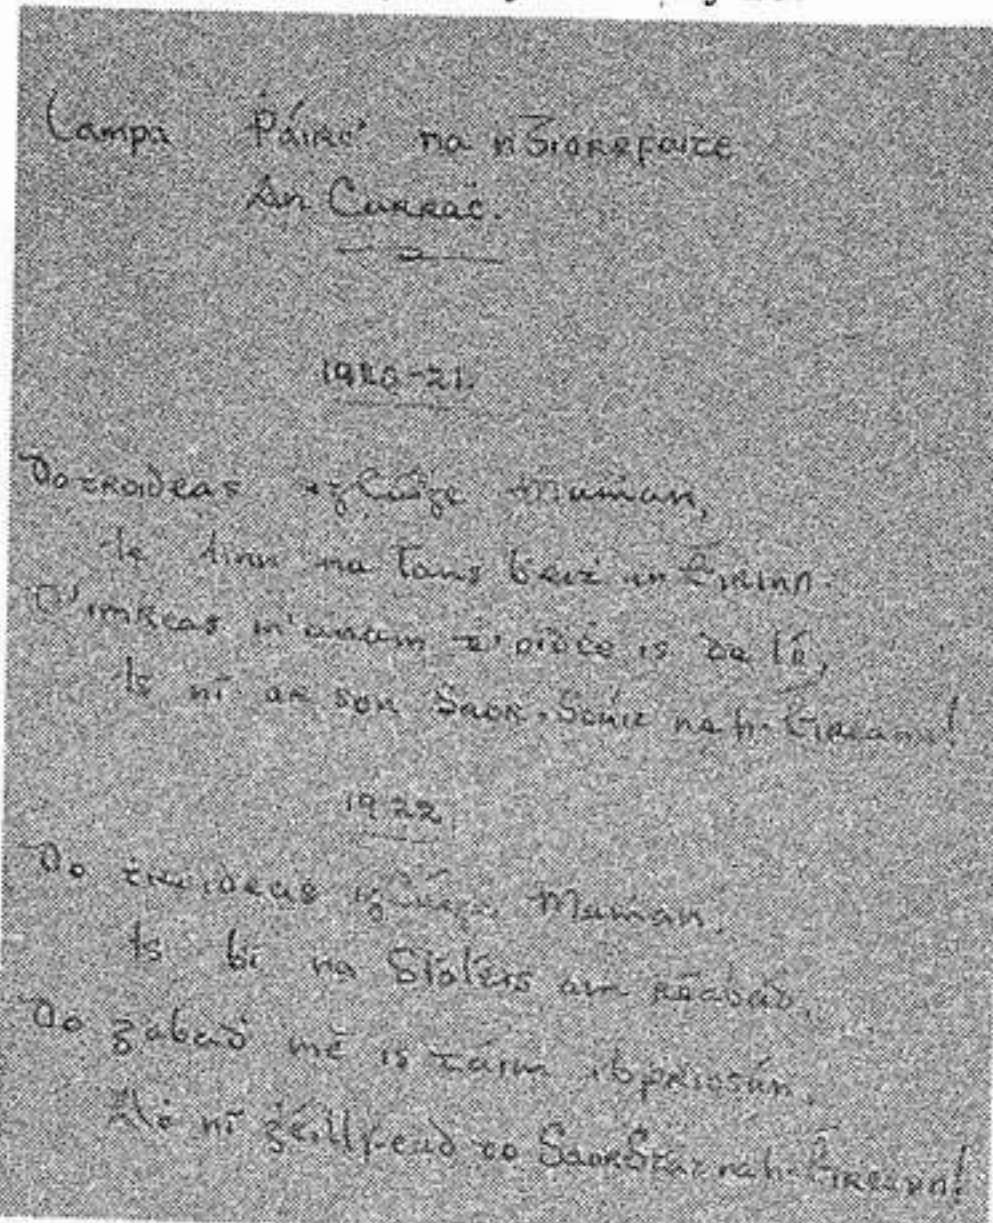 Campa Páirc' na nGiorrfaite
An Curraċ.
1920-21.
Do troideas i gCúige Muṁan,
le linn na Tans ḃeiṫ in Éirinn.
D'imreas m'anam d'oiḋċe is de ló,
Is ní ar son Saor-Stáit na h-Éireann!
1922
Do troideas i gCúige Muṁan,
Is bí na Státers am réabaḋ,
Do gabaḋ mé is táim i bpriosún,
Aċ ní géillfead do SaorStát na h-Éireann!